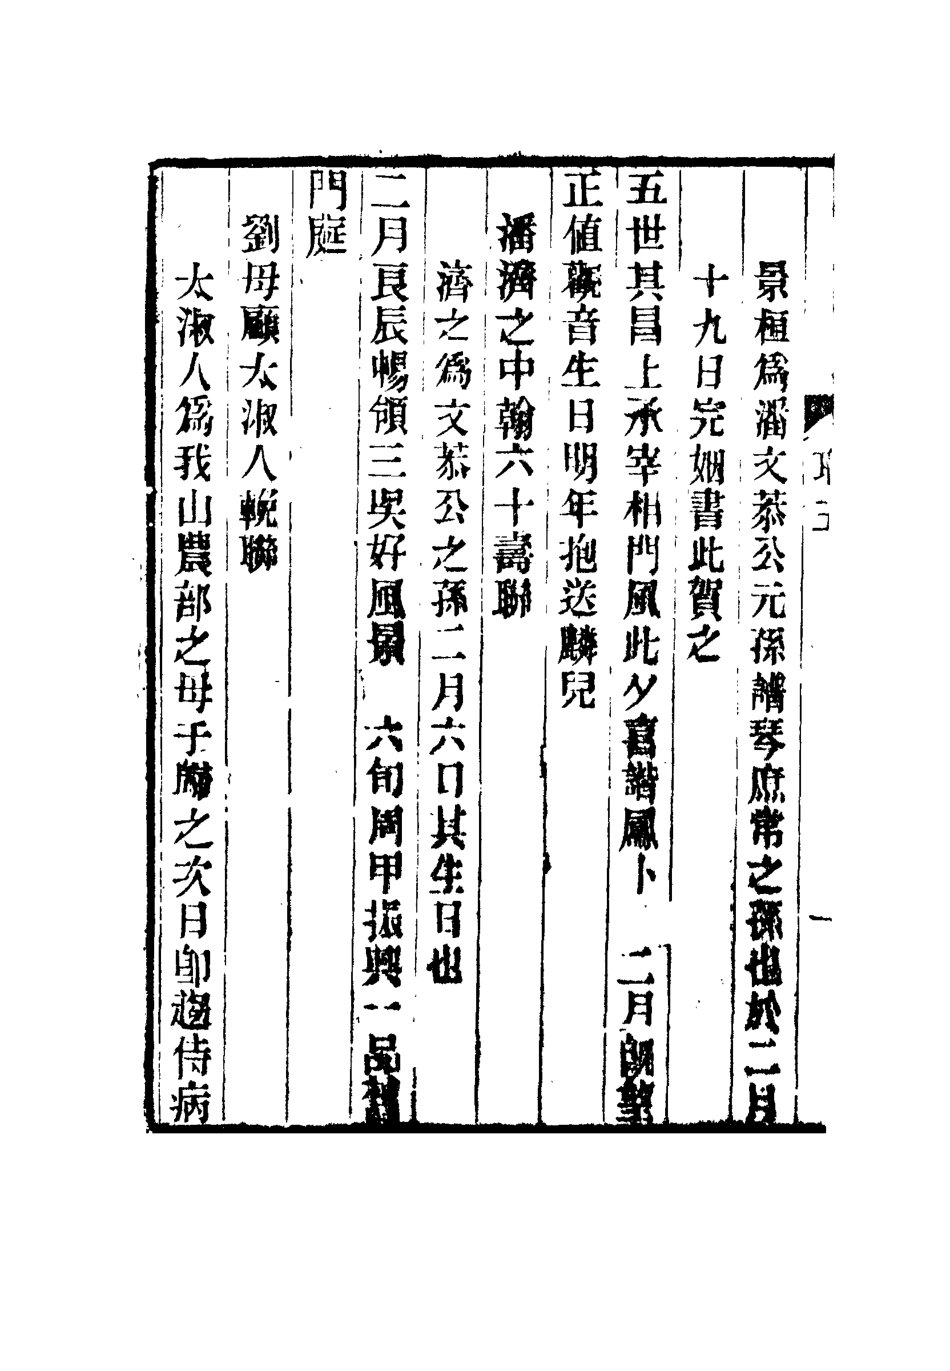 景桓爲潘文恭公元孫譜琴庶常之孫也於二月
十九日完姻書此賀之
五世其昌上承宰相門風此夕喜諧鳳卜　二月既望
正值觀音生日明年抱送麟兒
潘濟之中翰六十壽聯
濟之爲文恭公之孫二月六日其生日也
二月良辰暢領三吳好風景　六旬周甲振興一品舊
門庭
劉母顧太淑人輓聯
太淑人爲我山農部之母于歸之次日卽趨侍病